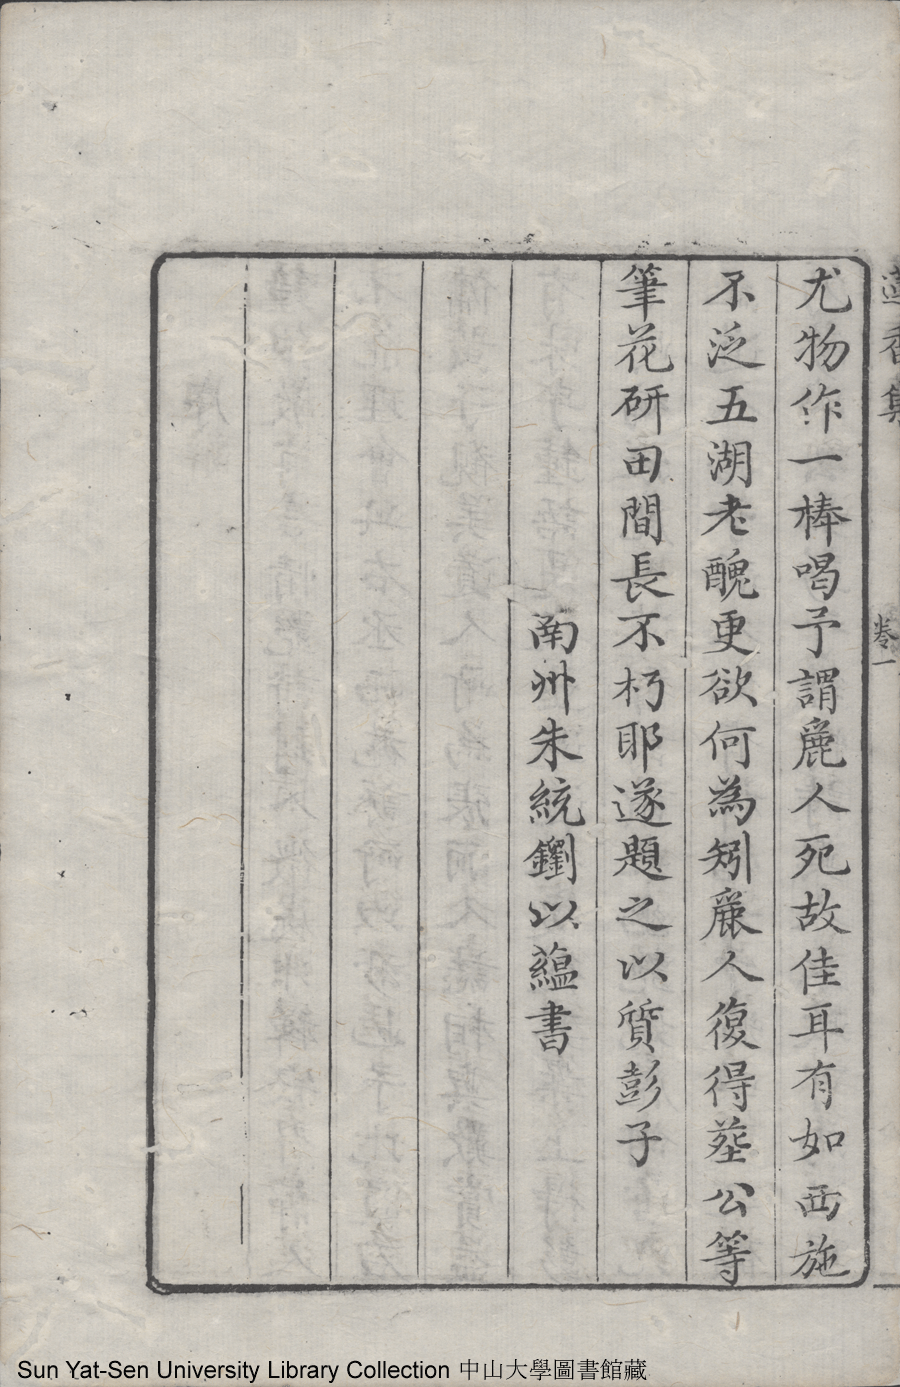 尤物作一棒喝予謂麗人死故佳耳有如西施
不泛五湖老醜更欲何為矧麗人復得塟公等
筆花研田間長不朽耶遂題之以質彭子
南州朱統鐗以蘊書
蓮香集
卷一
Sun Yat-Sen University Library Collection 中山大學圖書館藏